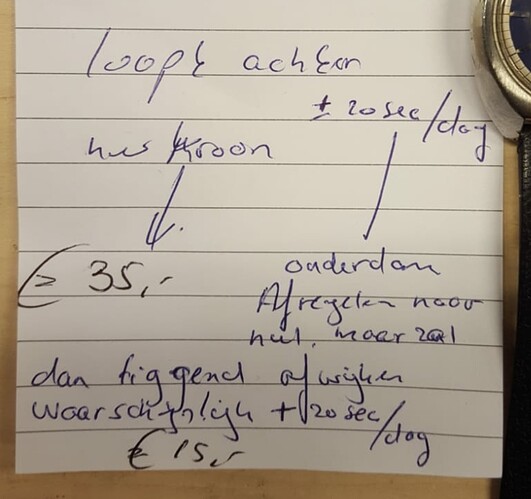 loopt achter
± 20 sec/dag
kroon
€ 35,-
onderdom
Afregelen naar
nul, maar zal
dan liggend afwijken
waarschijnlijk + 20 sec/dag
€ 15,-